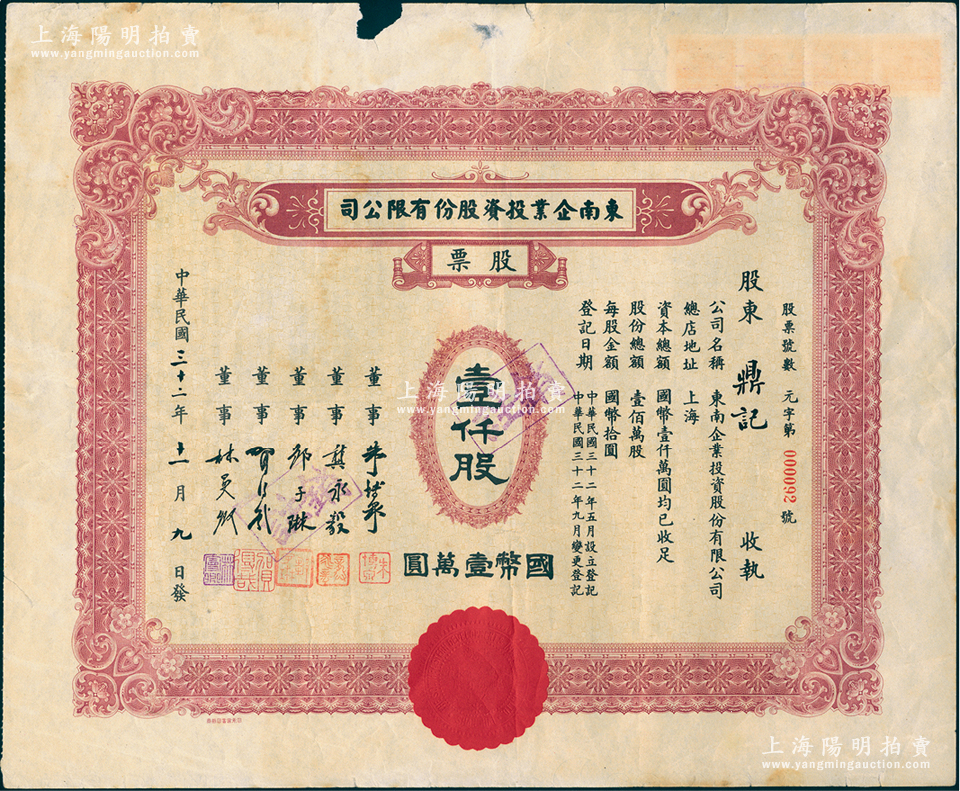 上海陽明拍賣
www.yangmingauction.com
東南企業投資股份有限公司
股票
股票號數 元字第 000092 號
股東 鼎記 收執
公司名稱 東南企業投資股份有限公司
總店地址 上海
資本總額 國幣壹仟萬圓均已收足
股份總額 壹佰萬股
每股金額 國幣拾圓
登記日期 中華民國三十二年五月設立登記
中華民國三十二年九月變更登記
壹仟股
國幣壹萬圓
董事
董事 龔永毅
董事 鄒子琳
董事
董事 林
中華民國三十二年十一月九日發
上海陽明拍賣
www.yangmingauction.com
上海陽明拍賣
www.yangmingauction.com